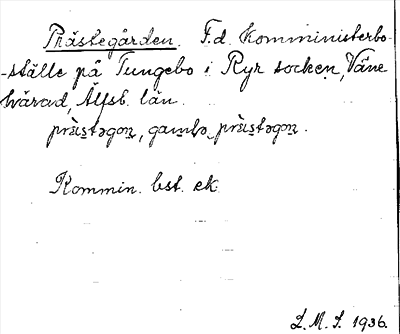 Prästegården. F.d. komministerbo-
-ställe på Tungebo i Ryr socken, Väne
härad, Älfsb. län.
prä̀stəgoṉ, gamlə prä̀stəgoṉ.
Kommin. bst. ek
L.M.S. 1936.